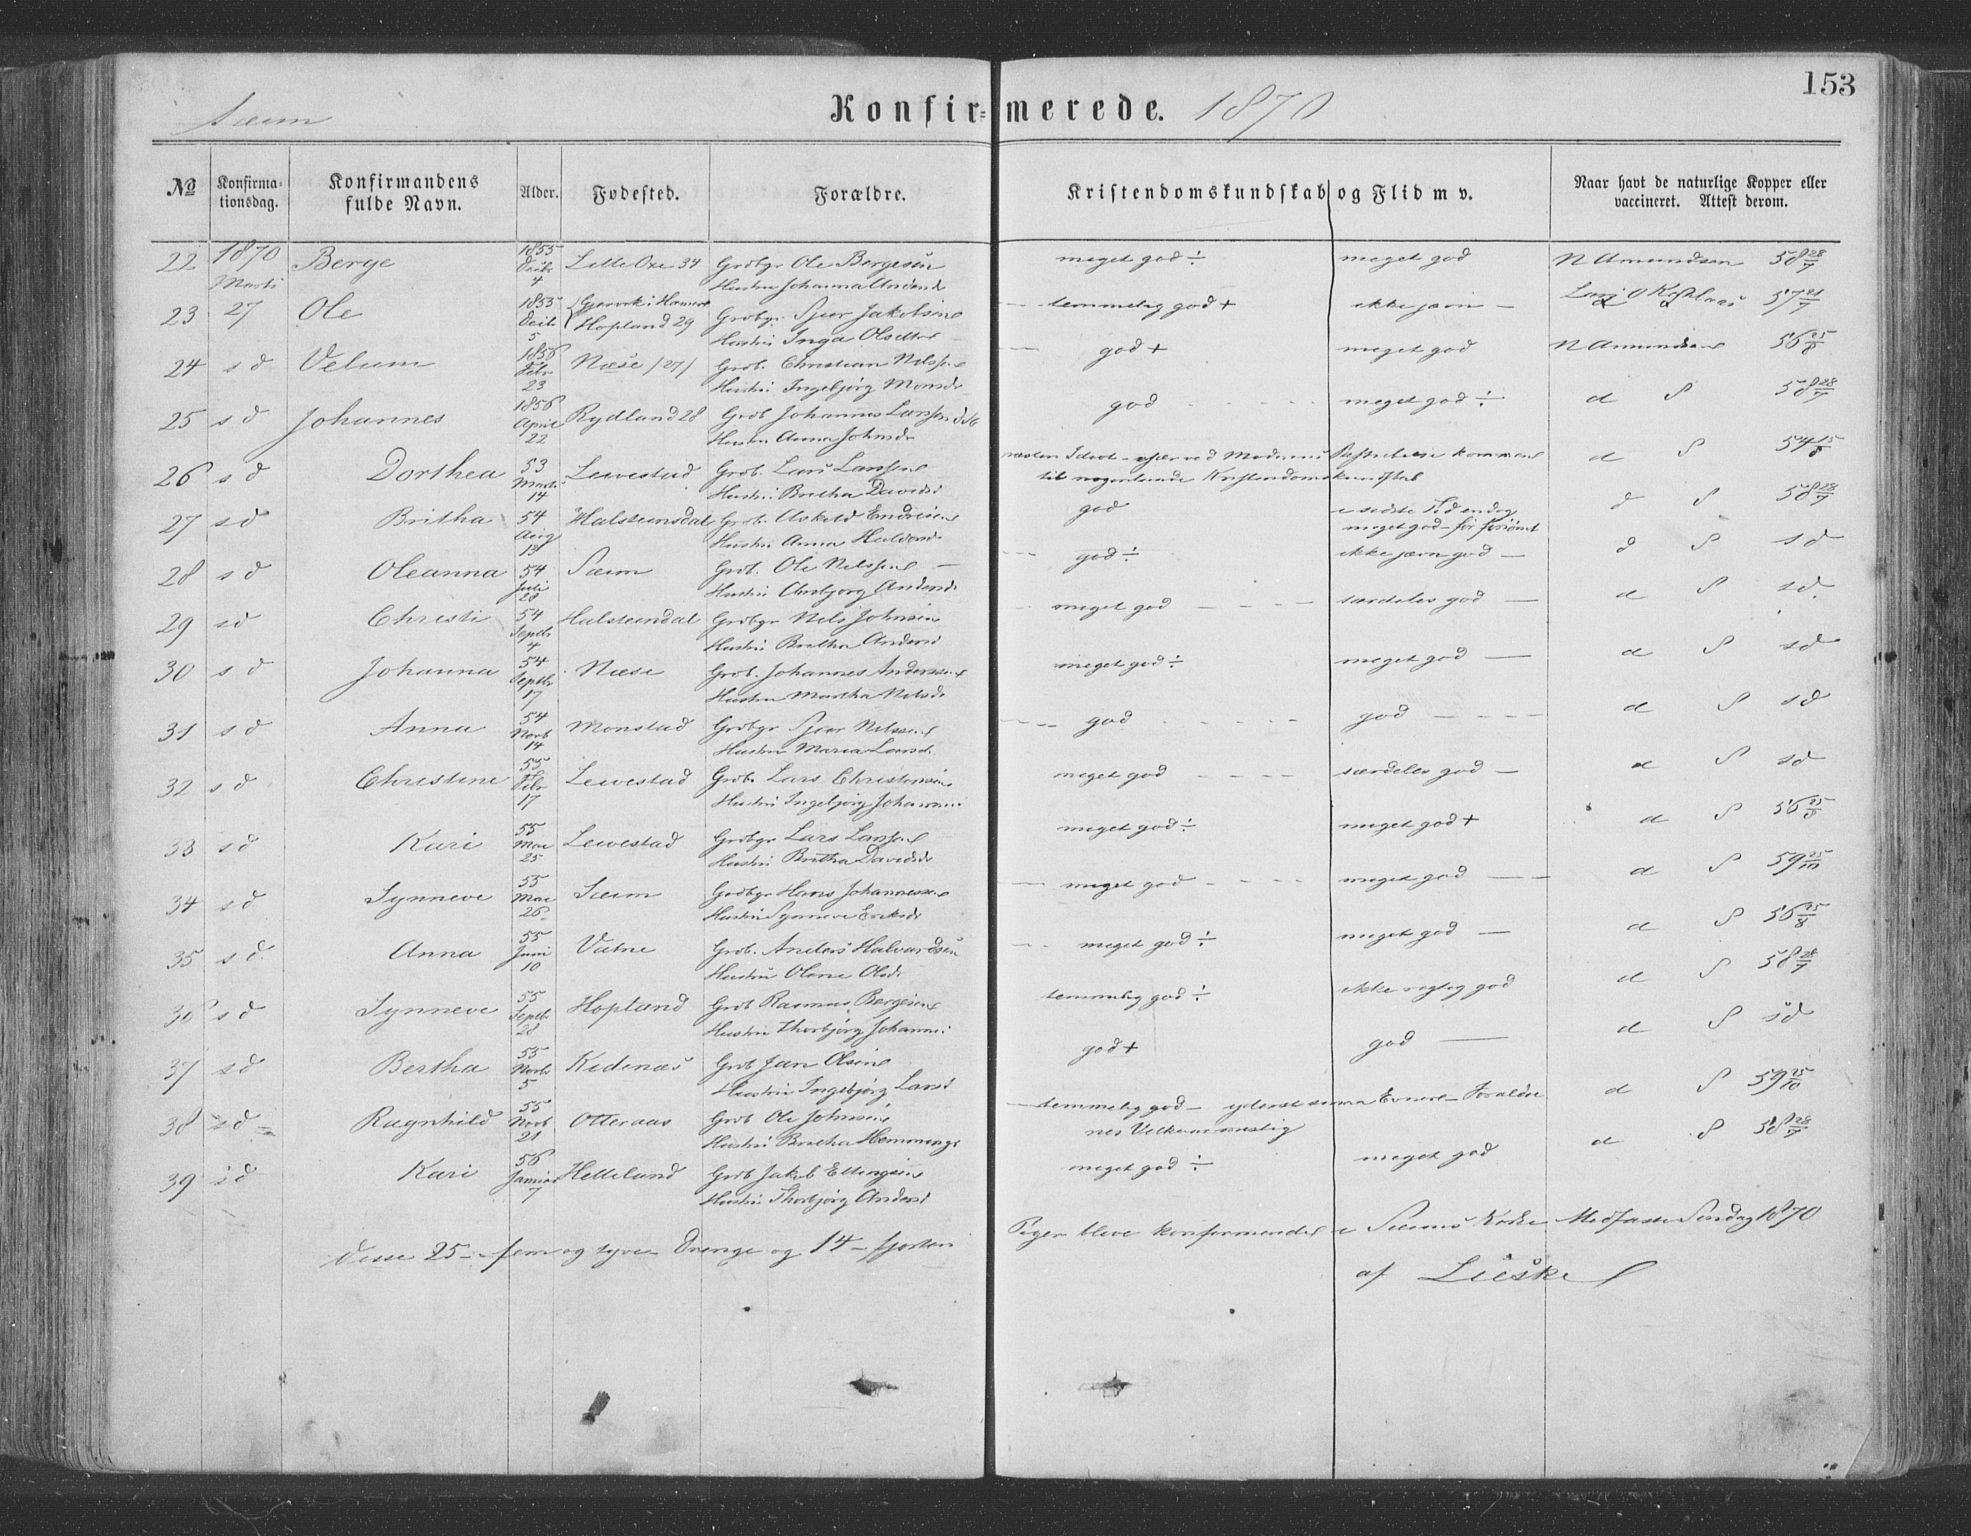 153
Sæim Konfirmerede. 1870
№ Konfirmationsdag. Konfirmandens fulde Navn. Alder. Fødested. Forældre. Kristendomskundskab og Flid m v. Naar havt de naturlige Kopper eller vaccineret. Attest derom.
22 1870 Marts 27 Berge 1855 Decbr 4 Lille Oxe 34 Grdbgr Ole Bergesen Hustru Johanna Andersd meget god ÷ meget god N Amundsen 58 28/7
23 Ole 1855 Decbr 5 Hopland 29 Grdbgr. Sjur Jakobsen Hustru Inga Olsdtr temmelig god + ikke jævn — 57 21/7
24 s d Velum 1856 Febr 23 Næse /27/ Grdb. Christian Nilssen Hustru Ingebjørg Monsdr god + meget god N Amundsen 56 25/8
25 s d Johannes 1856 April 22 Rydland 28 Grdb Johannes Larssen Hustru Anna Johnsdr god meget god ÷ d S 58 28/7
26 s d Dorthea 53 Marts 14 Levestad Grdb. Lars Larssen Hustru Britha Davidsd næsten Idiot - ved Moderens kommen til nogenlunde Kristendomskundskab d S 54 15/8
27 s d Britha 54 Aug 13 Halsteinsdal Grdb. Askild Endresen Hustru Anna Haldorsd god i sidste Tid endog meget god - før forsømt d S 58 28/7
28 s d Oleanna 54 Juli 28 Sæim Grdb. Ole Nilssen — Hustru Ansbjørg Andersd god ÷ ikke jævn god — d S s d
29 s d Christi 54 Septbr 4 Halsteindal Grdbgr Nils Johnsen Hustru Britha Andersd meget god særdeles god — d S s d.
30 s d Johanna 54 Septbr 17 Næse Grdb. Johannes Anderssen Hustru Martha Nilsdr meget god ÷ meget god — d S s d
31 s d Anna 54 Novb 14 Monstad Grdbgr Sjur Nilssen Hustru Maria Larsd. god god d S s d
32 s d Christine 55 Febr 17 Levestad Grdb. Lars Christensen Hustru Ingebjørg Johannesd meget god særdeles god — d S s d
33 s d Kari 55 Mai 25 Levestad Grdbgr Lars Larssen Hustru Britha Davidsdr meget god ÷ meget god + d S 56 25/8
34 s d Synneve 55 Mai 26 Sæim Grdbgr Hans Johannessen Hustru Synneve Eriksdr meget god meget god — d S 59 25/10
35 s d. Anna 55 Juni 10 Vatne Grdb. Anders Halvardsen Hustru Oline Olsdr meget god ÷ meget god — d S 56 25/8
36 s d Synneve 55 Septbr 28 Hopland Grdb Rasmus Bergesen Hustru Thorbjørg Johannesd temmelig god ÷ ikke rigtig god d S 58 28/7
37 s d Bertha 55 Novbr 5 Kidenæs Grdb Jan Olsen Hustru Ingebjørg Larsd god + god — d S s d
38 s d Ragnhild 55 Novb 21 Otteraas Grdb Ole Johnsen Hustru Britha Hemmings temmelig god — yderst Evner - Forældre nes d S 59 25/10
39 s d Kari 56 Januar 7 Helleland Grdb Jakob Ellingsen Hustru Thorbjørg Andersd meget god ÷ meget god d S 58 28/7
Disse 25 - fem og tyve Drenge og 14 - fjorten Piger bleve konfirmerede i Sæims Kirke Midfaste Søndag 1870
af Lieske